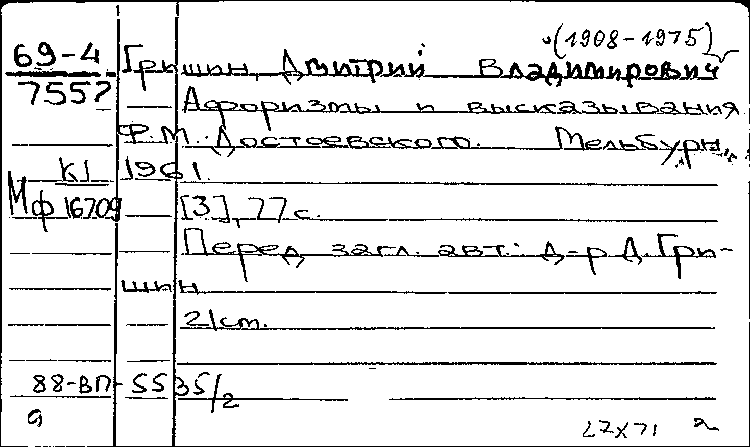 (1908-1975)
69-4 Гришин, Дмитрий Владимирович
7557 Афоризмы и высказывания
Ф.М. Достоевского. Мельбурн,
К1 1961.
Мф 16709 [3], 77 с.
Перед загл. авт.: д-р Д. Гри-
шин
21 cm.
88-ВП-5535/2
а 27х71